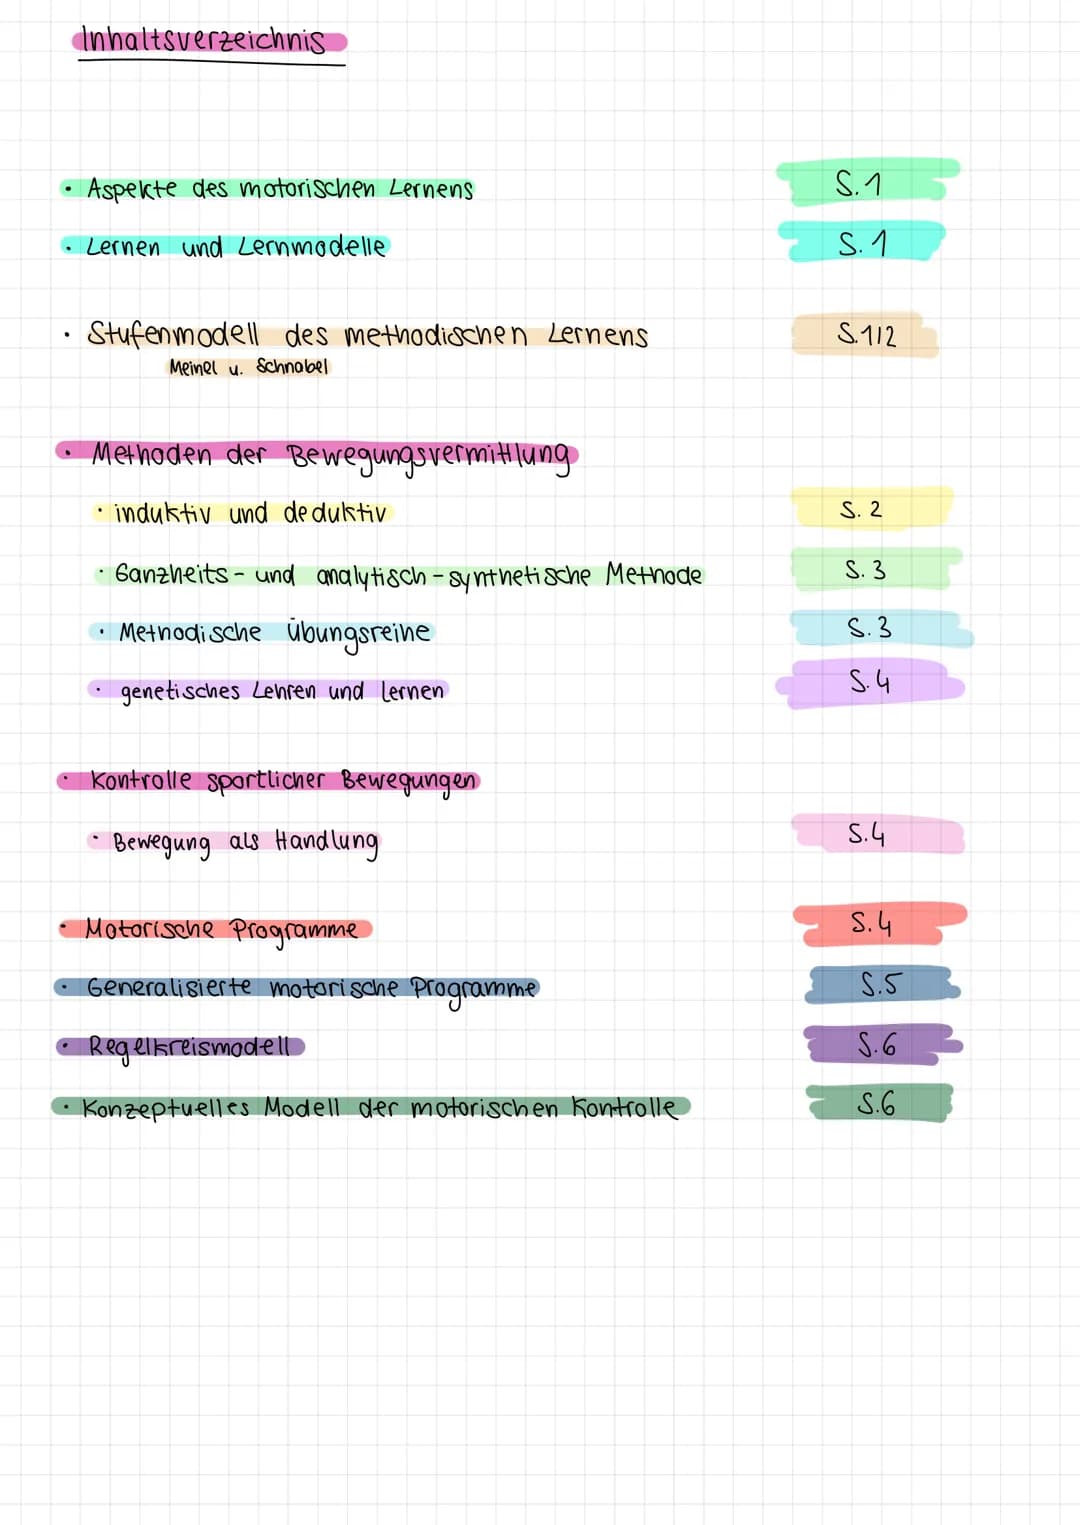 Inhaltsverzeichnis
• Aspekte des motorischen Lernens S.1
• Lernen und Lernmodelle S.1
• Stufenmodell des methodischen Lernens S.1/2
Meinel u. Schnabel
• Methoden der Bewegungsvermittlung
• induktiv und deduktiv S. 2
• Ganzheits- und analytisch-synthetische Methode S. 3
• Methodische Übungsreihe S. 3
• genetisches Lehren und Lernen S. 4
• Kontrolle sportlicher Bewegungen
• Bewegung als Handlung S.4
• Motorische Programme S.4
• Generalisierte motorische Programme S.5
• Regelkreismodell S.6
• Konzeptuelles Modell der motorischen Kontrolle S.6